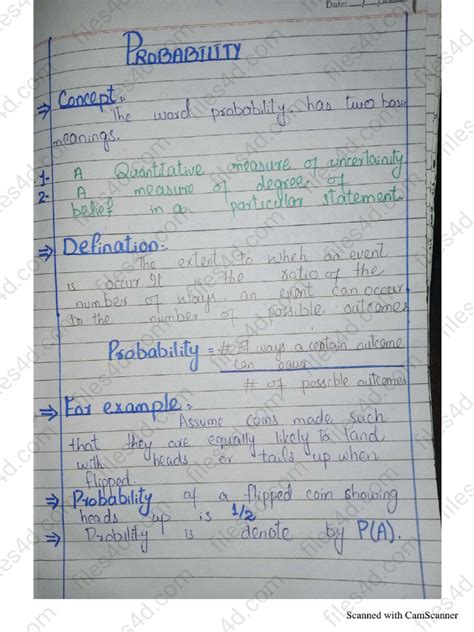 Date:
PROBABILITY
⇒ Concept:
The word probability has two basic
meanings.
1- A Quantiative measure of uncertainity
2- A measure of degree of
belief in a particular statement.
⇒ Defination:
The extent to wheh an event
is occur. It is the ratio of the
number of ways an event can occur
to the number of possible outcomes
Probability = # of ways a certain outcome
can occur
# of possible outcomes
⇒ For example:
Assume coins made such
that they are equally likely to land
with heads or tails up when
flipped.
⇒ Probability of a flipped coin showing
heads up is 1/2
⇒ Probility is denote by P(A).
files4d.com
Scanned with CamScanner